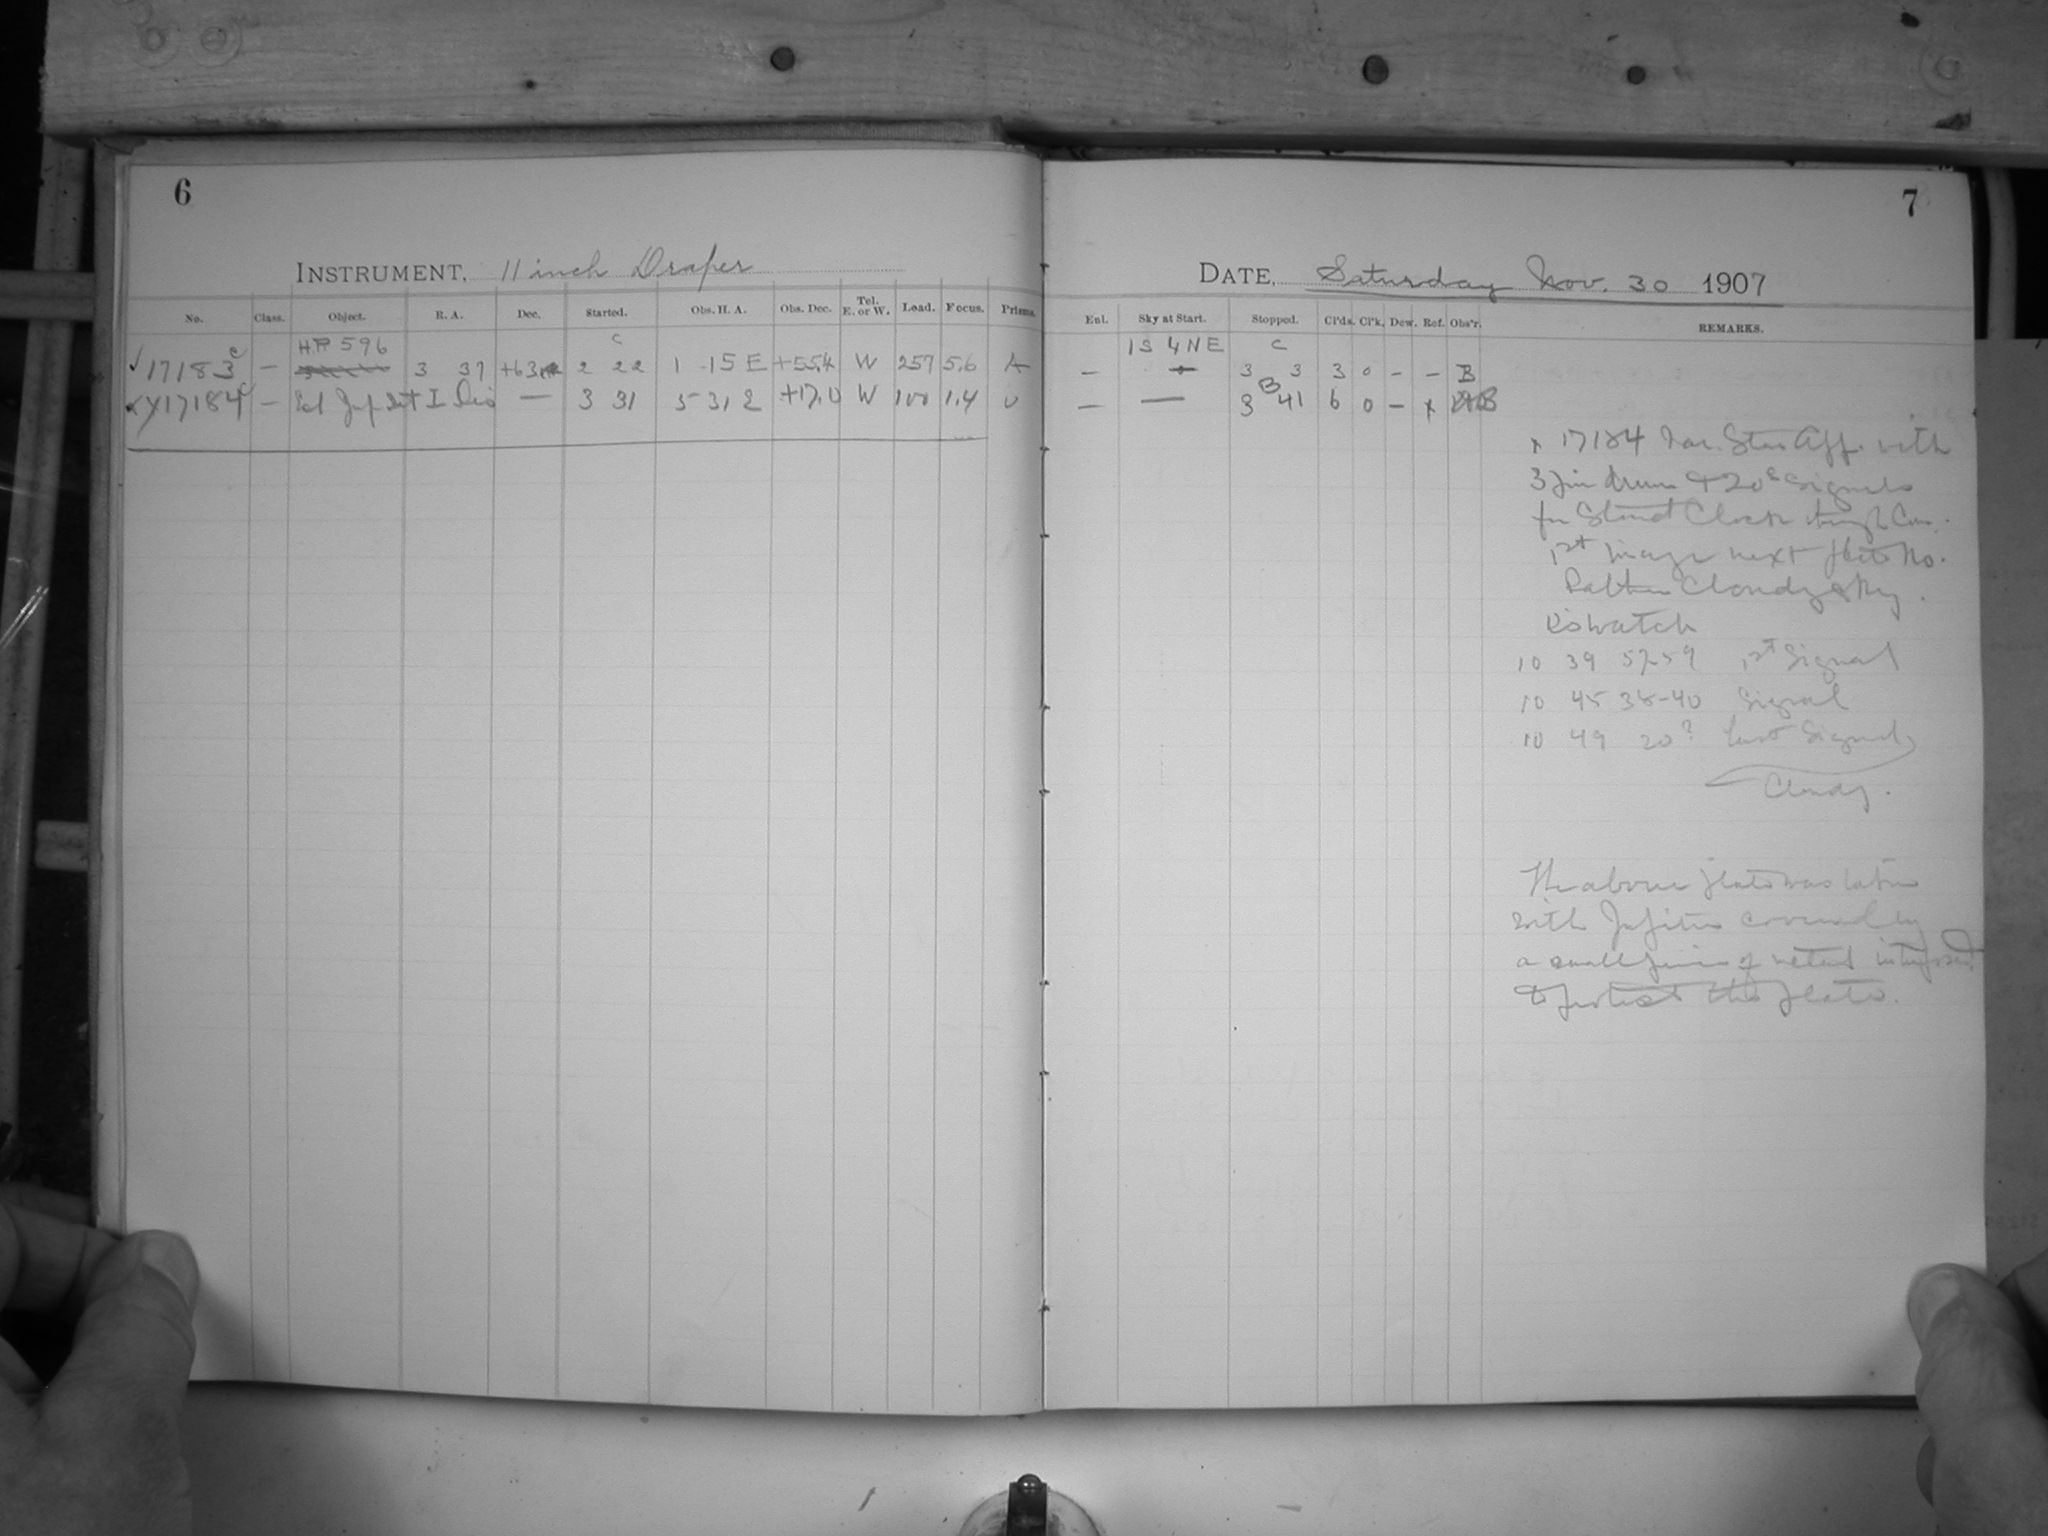 6
INSTRUMENT, 11 inch Draper
No. Class. Object. R. A. Dec. Started. Obs. H. A. Obs. Dec. Tel. E. or W. Load. Focus. Prisms.
HP 596 C
✓ 17183 c — 3 37 +63 2 22 1 15 E +55.4 W 257 5.6 A
17184 c — I — 3 31 5 31 2 +17.0 W 100 1.4 0
7
DATE, Saturday Nov. 30 1907
Enl. Sky at Start. Stopped. Cl'ds. Cl'k. Dew. Ref. Obs'r. REMARKS.
1S 4NE C
— 3 3 3 0 - - B
— — 3 B 41 6 0 - x
x 17184 Star App. with
3 drum & 20s signals
Stand Clock
1st image next plate No.
Rather Cloudy sky.
K's watch
10 39 57-59 1st Signal
10 45 38-40 Signal
10 49 20? Last Signal
Cloudy.
The above plate was taken
with Jupiter covered by
a small piece of metal interposed
to protect the plate.